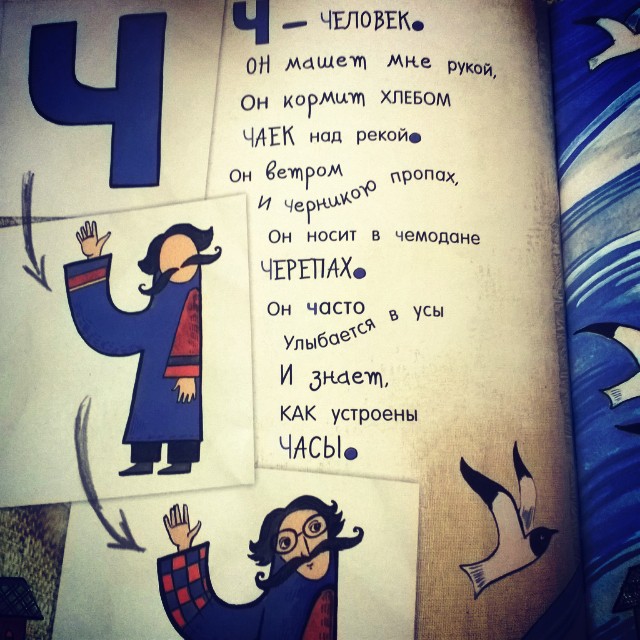 Ч
Ч – ЧЕЛОВЕК.
ОН машет мне рукой,
Он кормит ХЛЕБОМ
ЧАЕК над рекой.
Он ветром пропах,
И черникою
Он носит в чемодане
ЧЕРЕПАХ.
Он часто в усы
Улыбается
И знает,
КАК устроены
ЧАСЫ.